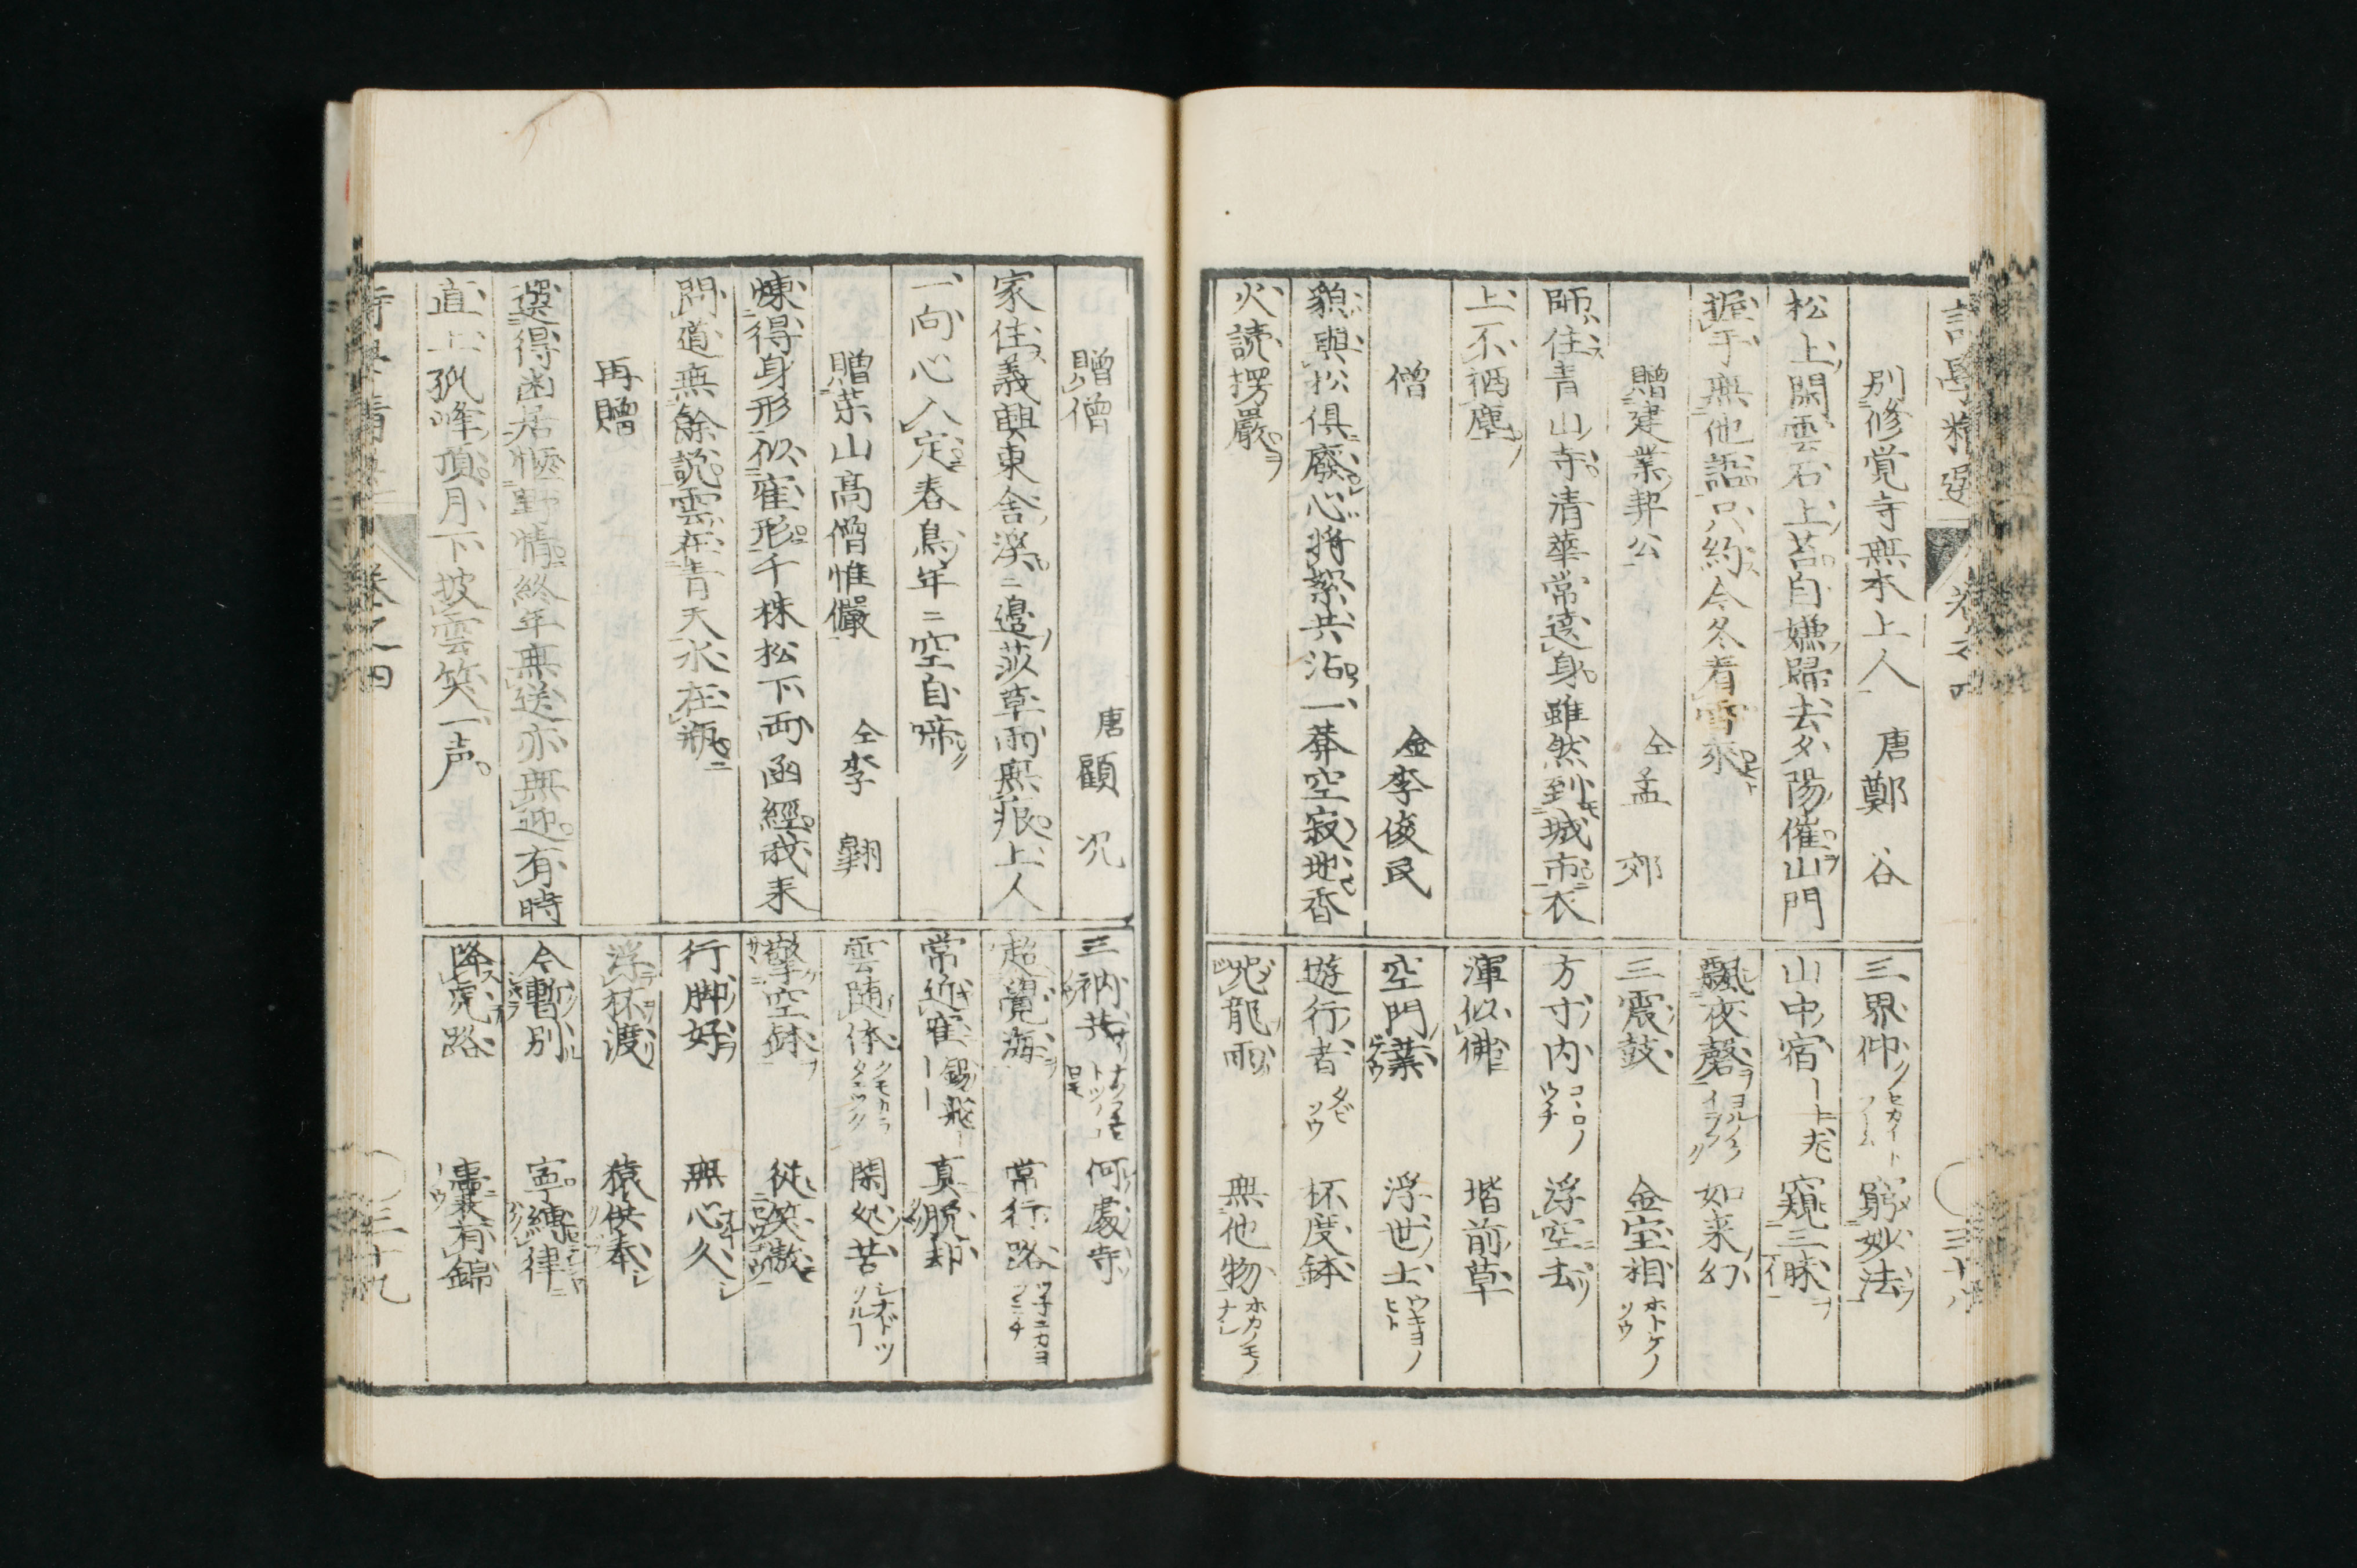 別修覚寺無本上人 唐鄭谷
松上閑雲石上苔自嫌歸去夕陽催山門
握手無他語只約今冬看雪來
贈建業契公 仝孟郊
師住青山寺清華常遶身雖然到城市衣
上不栖塵
僧 金李俊民
貌與松俱廢心將絮共沾一葊空寂地香
火読楞嚴
三界仰 窮妙法
山中宿 窺三昧
飄夜磬 如来幻
三震鼓 金宝相
方寸内 浮空去
渾似佛 堦前草
空門業 浮世士
遊行者 杯度鉢
咒龍雨 無他物
贈僧 唐顧况
家住義興東舎溪溪邉莎草雨無痕上人
一向心入定春鳥年年空自啼
贈葉山高僧惟儼 仝李翱
煉得身形似寉形千株松下両函經我来
問道無餘説雲在青天水在瓶
再贈
選得幽居愜野情終年無送亦無迎有時
直上孤峰頂月下披雲笑一声
三衲共 何處寺
超覺海 常行路
常迎寉 真脱却
雲随体 閑処苦
擎空鉢 従笑傲
行脚好 無心久
浮杯渡 猿供奉
今暫別 寧縛律
降虎路 囊有錦
卷之四
三十九